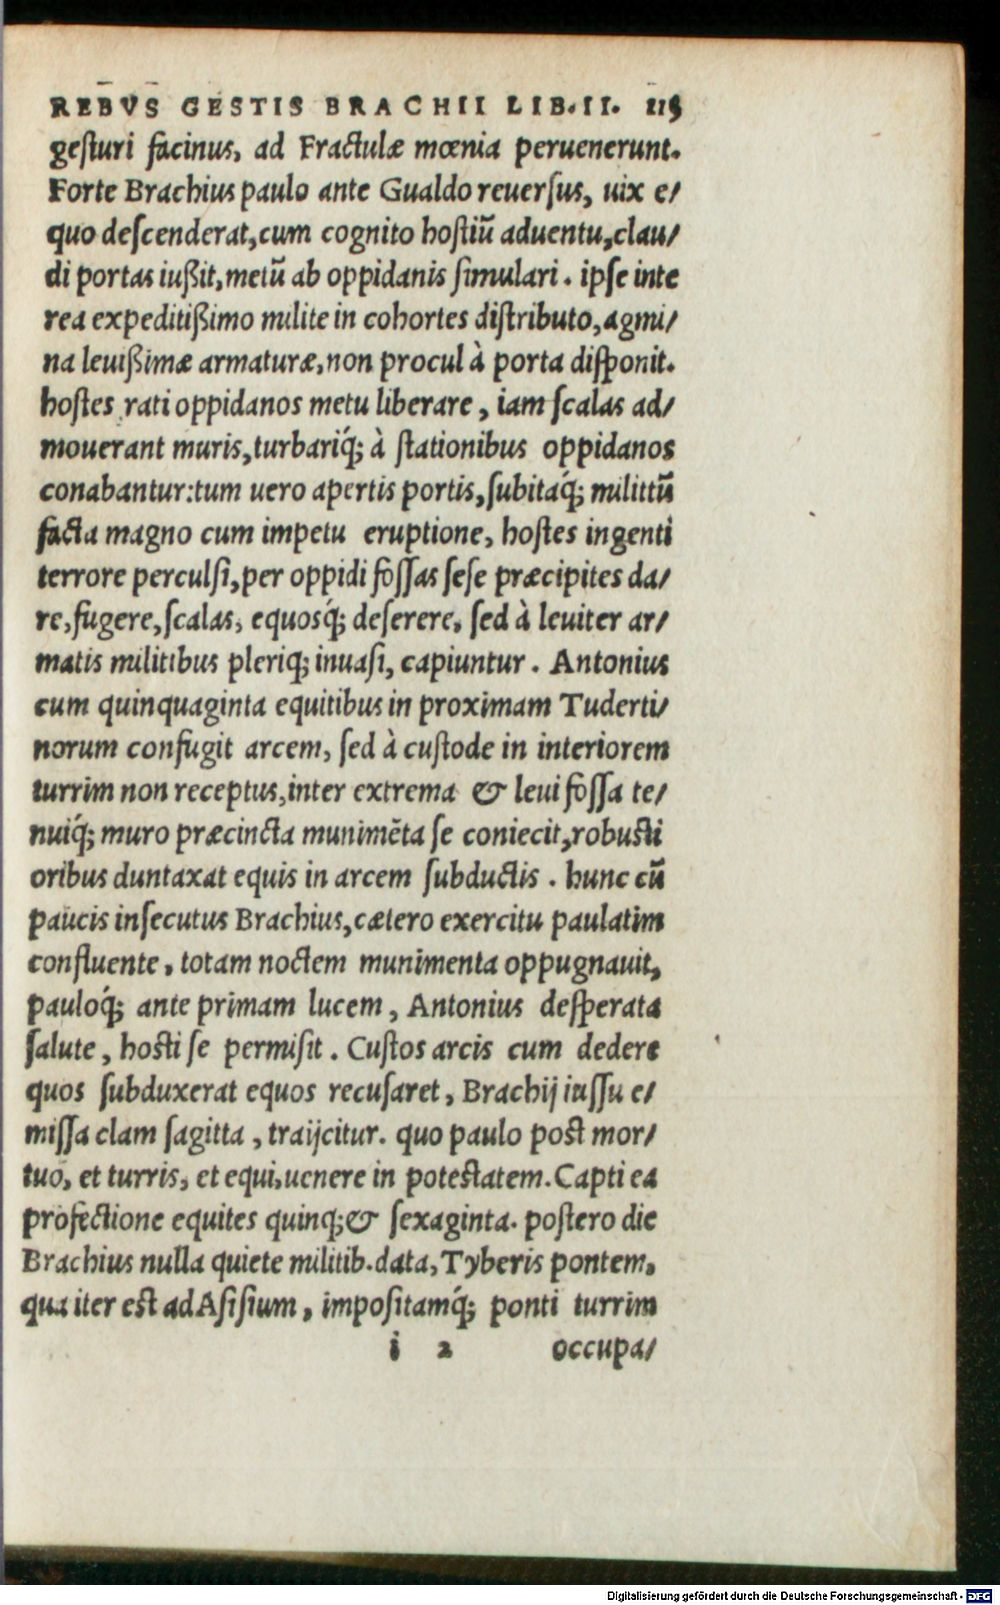 REBVS GESTIS BRACHII LIB. II. 115
gesturi facinus, ad Fractulæ mœnia peruenerunt.
Forte Brachius paulo ante Gualdo reuersus, uix e/
quo descenderat, cum cognito hostiū aduentu, clau/
di portas iußit, metū ab oppidanis simulari. ipse inte
rea expeditißimo milite in cohortes distributo, agmi/
na leuißimæ armaturæ, non procul à porta disponit.
hostes rati oppidanos metu liberare, iam scalas ad/
mouerant muris, turbariq́; à stationibus oppidanos
conabantur: tum uero apertis portis, subitaq́; milittū
facta magno cum impetu eruptione, hostes ingenti
terrore perculsi, per oppidi fossas sese præcipites da/
re, fugere, scalas, equosq́; deserere, sed à leuiter ar/
matis militibus pleriq; inuasi, capiuntur. Antonius
cum quinquaginta equitibus in proximam Tuderti/
norum confugit arcem, sed à custode in interiorem
turrim non receptus, inter extrema & leui fossa te/
nuiq́; muro præcincta munimēta se coniecit, robusti
oribus duntaxat equis in arcem subductis. hunc cū
paucis insecutus Brachius, cætero exercitu paulatim
confluente, totam noctem munimenta oppugnauit,
pauloq́; ante primam lucem, Antonius desperata
salute, hosti se permisit. Custos arcis cum dedere
quos subduxerat equos recusaret, Brachij iussu e/
missa clam sagitta, traijcitur. quo paulo post mor/
tuo, et turris, et equi, uenere in potestatem. Capti ea
profectione equites quinq; & sexaginta. postero die
Brachius nulla quiete militib. data, Tyberis pontem,
qua iter est ad Asisium, impositamq́; ponti turrim
i 2 occupa/
Digitalisierung gefördert durch die Deutsche Forschungsgemeinschaft - DFG